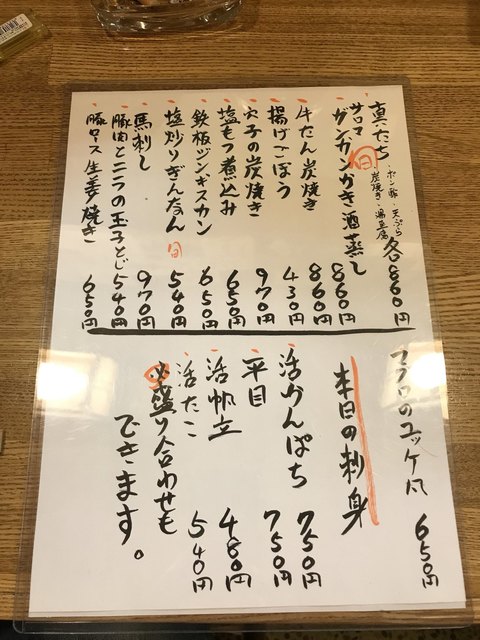 真たち ・ポン酢・天ぷら ・炭焼き・湯豆腐 各860円
サロマ 旬 ガンガンかき酒蒸し 860円
牛たん炭焼き 860円
揚げごぼう 430円
穴子の炭焼き 970円
塩もつ煮込み 650円
鉄板ジンギスカン 650円
塩炒りぎんなん 旬 540円
馬刺し 970円
豚肉とニラの玉子とじ 540円
豚ロース生姜焼き 650円
マグロのユッケ風 650円
本日の刺身
活かんぱち 750円
平目 750円
活帆立 480円
活たこ 540円
盛り合わせも
できます。